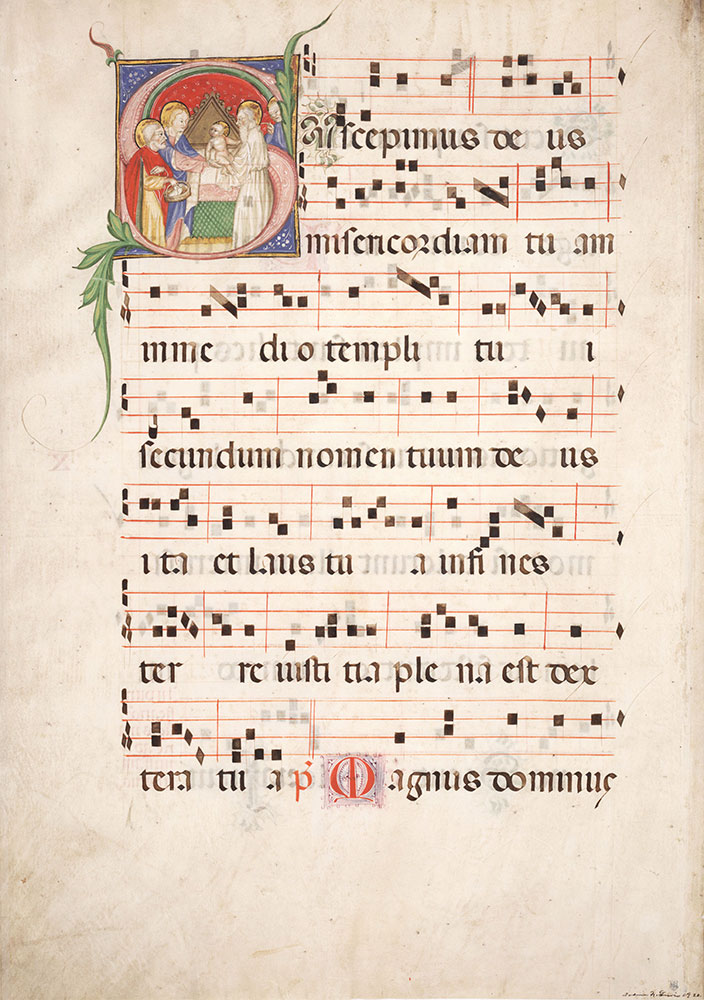 Suscepimus deus
misericordiam tuam
in medio templi tui
secundum nomen tuum deus
ita et laus tua in fines
terre iusti tia plena est dex
tera tua p̃ Magnus dominus